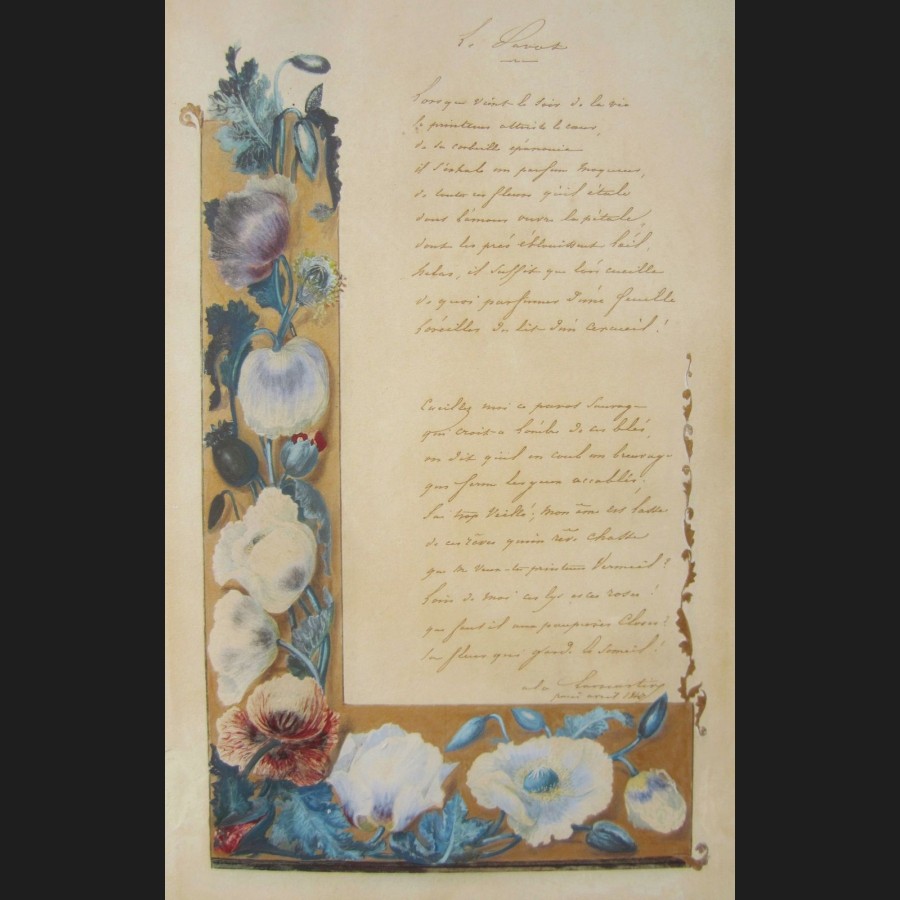 Le Pavot
Lorsque vient le soir de la vie
le printems attriste le cœur,
de sa corbeille épanouie
il s'exhale un parfum moqueur,
de toutes ces fleurs qu'il étale
dont l'amour ouvre la pétale,
dont les prés éblouissent l'œil,
hélas, il suffit que l'on cueille
de quoi parfumer d'une feuille
l'oreiller du lit d'un cercueil!
Cueillez moi ce pavot sauvage
qui croit à l'ombre de ces blés,
on dit qu'il en coule un breuvage
qui ferme les yeux accablés,
J'ai trop veillé; mon âme est lasse
de ces rêves qu'un rêve chasse
que me veux-tu printems vermeil?
loin de moi ces lys et ces roses!
que faut-il aux paupières closes?
la fleur qui garde le someil!
Lamartine
avril